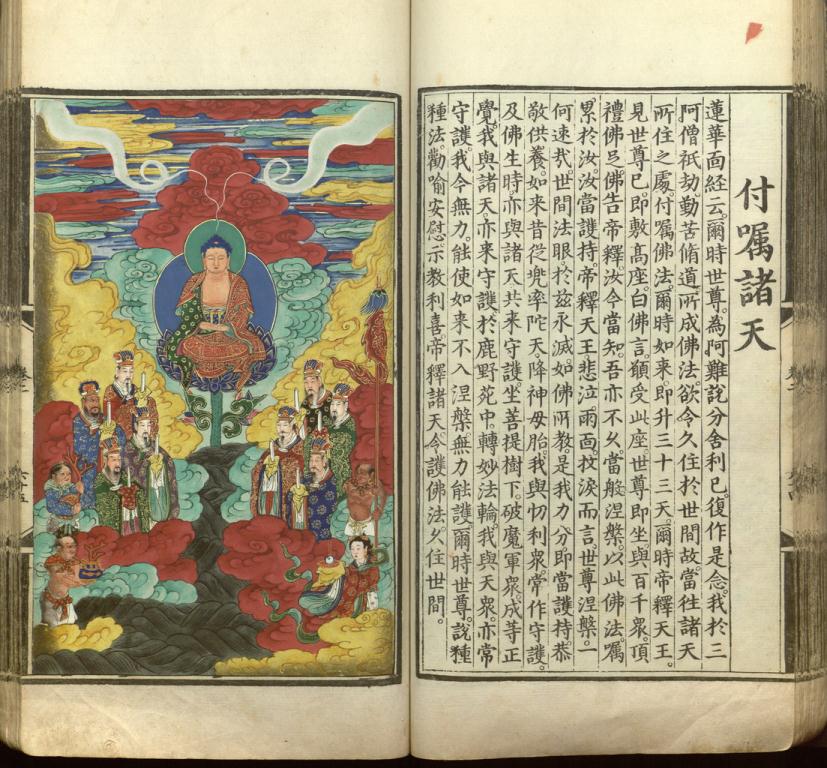 付嘱諸天
蓮華面経云。爾時世尊。為阿難說分舍利已。復作是念。我於三
阿僧祇劫勤苦脩道。所成佛法。欲令久住於世間故。當往諸天
所住之處付嘱佛法。爾時如来。即升三十三天。爾時帝釋天王。
見世尊已即敷髙座。白佛言。願受此座。世尊即坐與百千衆。頂
禮佛足。佛告帝釋。汝今當知。吾亦不久。當般涅槃。以此佛法。嘱
累於汝。汝當護持。帝釋天王悲泣雨面。抆淚而言。世尊涅槃。一
何速哉。世間法眼於茲永滅。如佛所教。是我力分即當護持恭
敬供養。如来昔從兜率陀天。降神母胎。我與忉利衆。常作守護。
及佛生時亦與諸天。共来守護。坐菩提樹下。破魔軍衆。成等正
覺。我與諸天。亦来守護。於鹿野苑中。轉妙法輪。我與天衆。亦常
守護。我今無力。能使如来不入涅槃。無力能護。爾時世尊。說種
種法。勸喻安慰。示教利喜。帝釋諸天。令護佛法。久住世間。